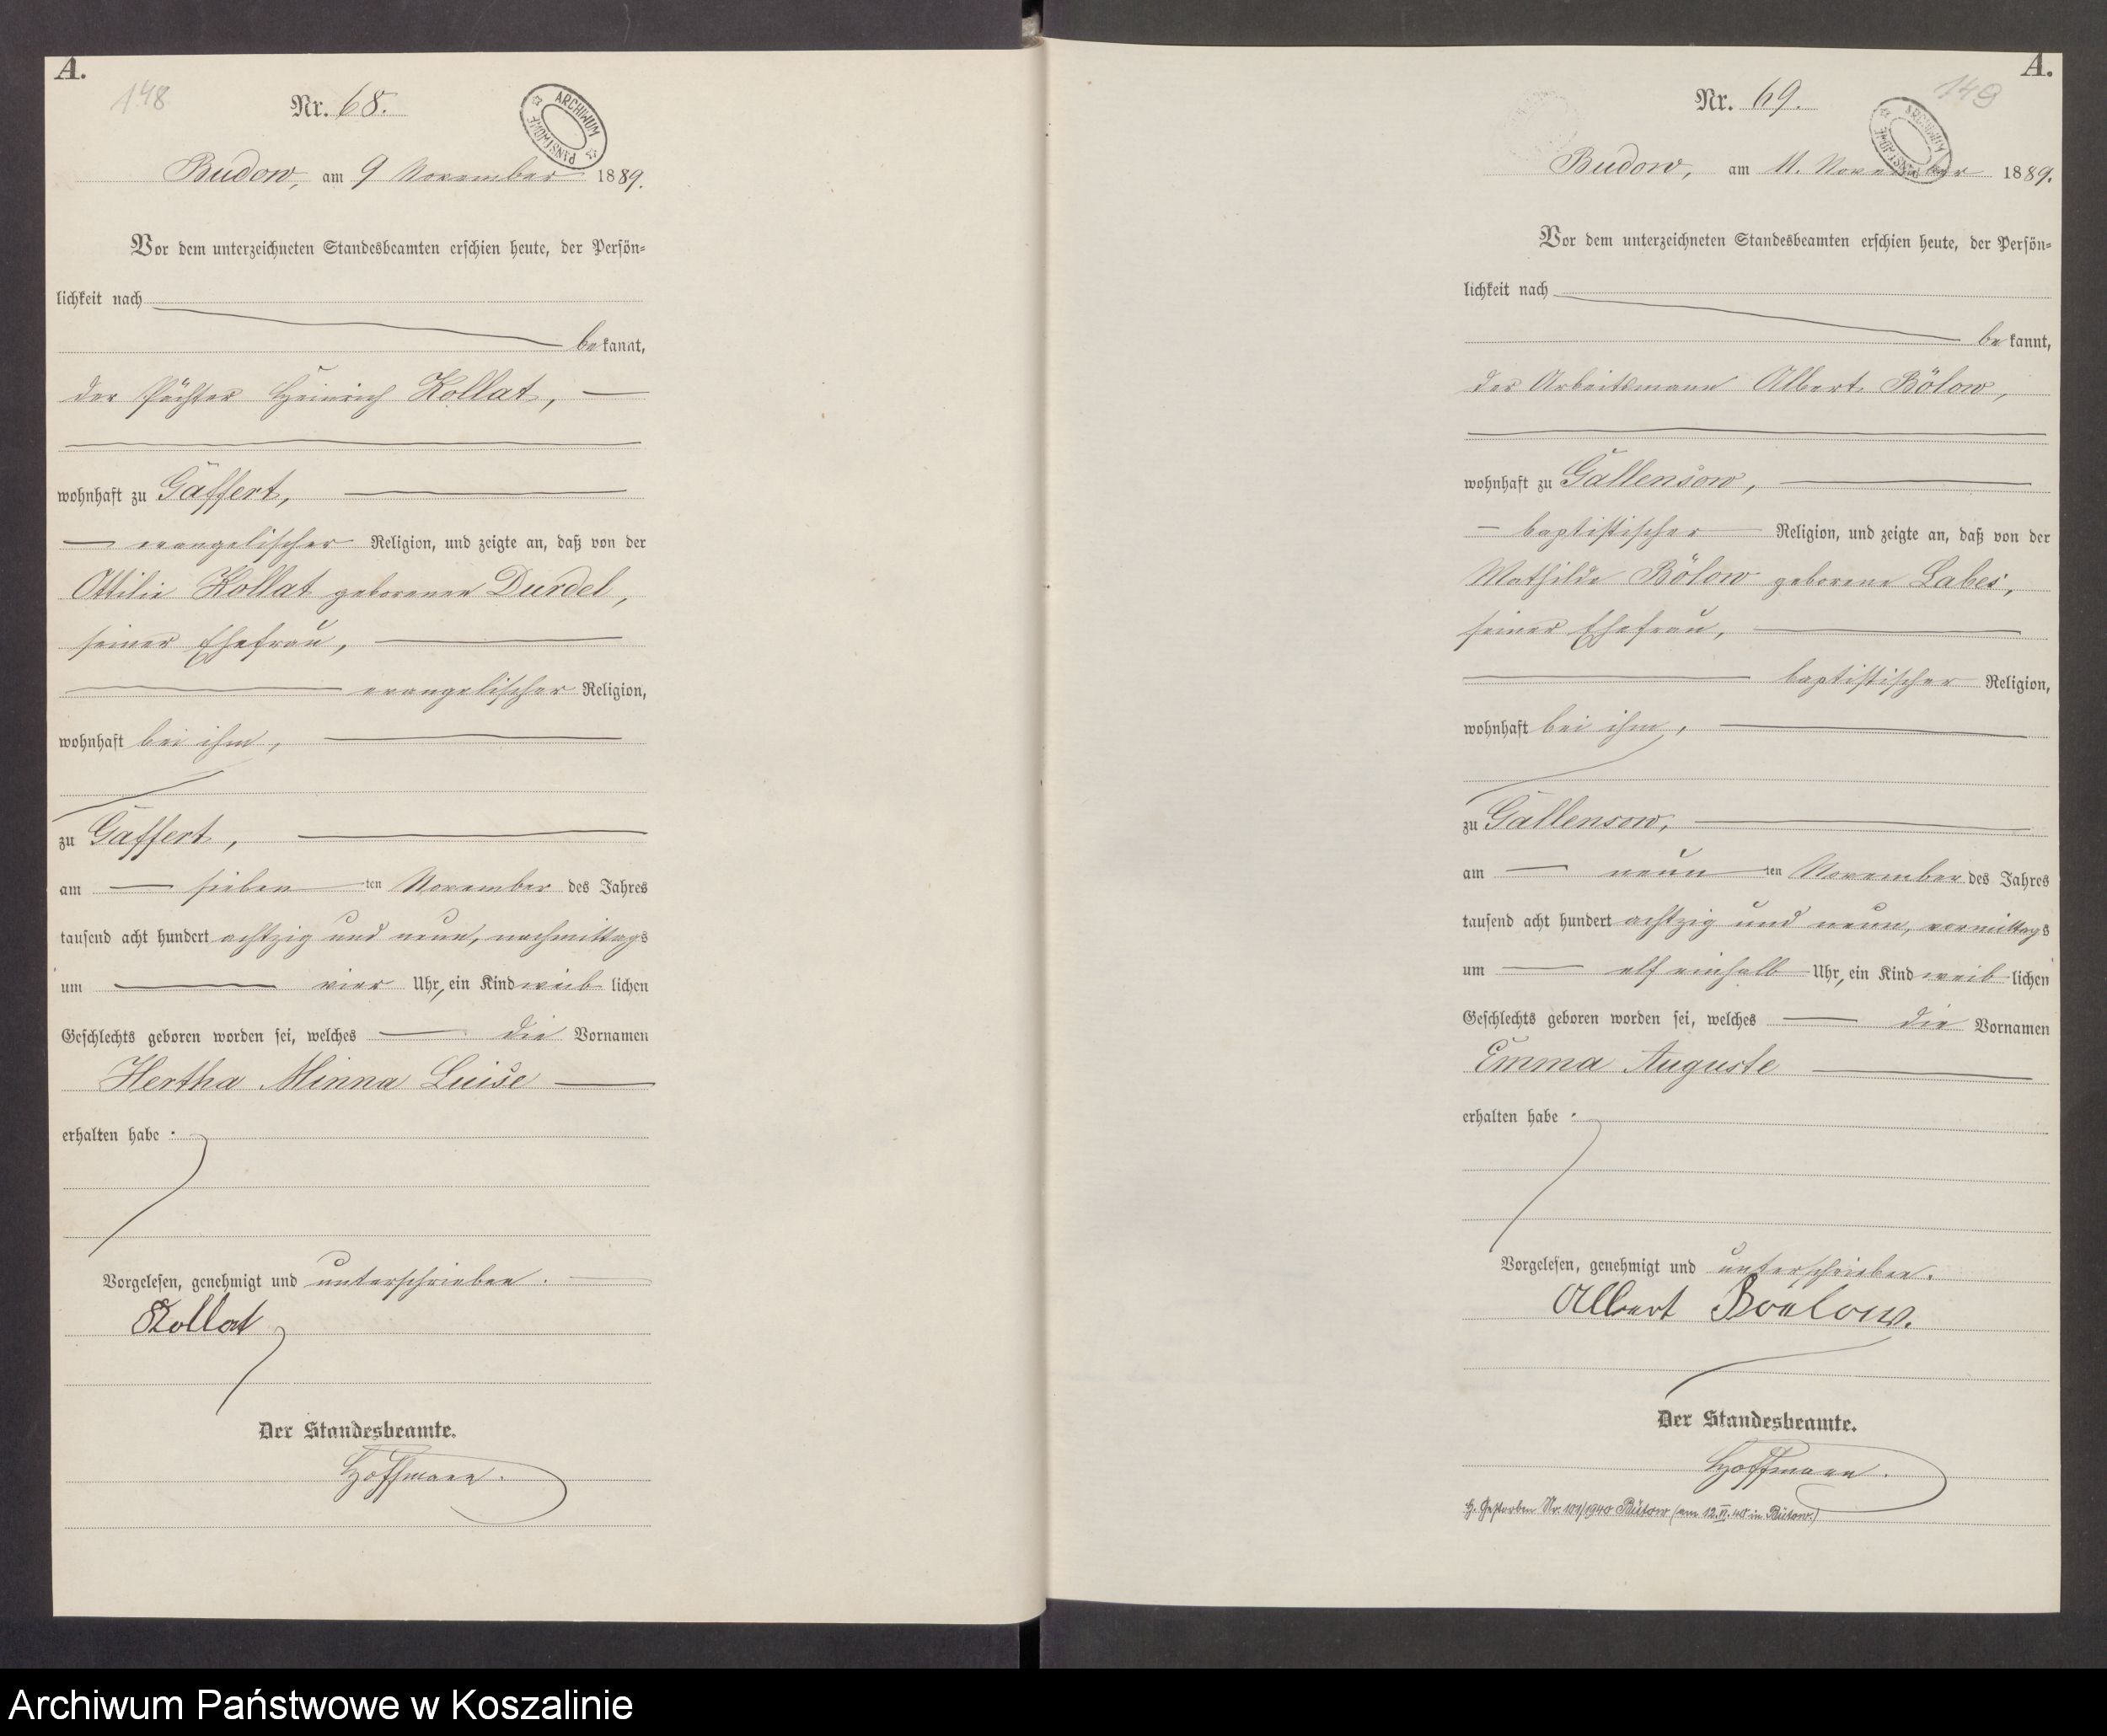 A.
148
Nr. 68.
ARCHIWUM PAŃSTWOWE
Budow, am 9 November 1889.
Vor dem unterzeichneten Standesbeamten erschien heute, der Persön=
lichkeit nach
bekannt,
der Pächter Heinrich Kollat,
wohnhaft zu Gaffert,
evangelischer Religion, und zeigte an, daß von der
Ottilie Kollat geborenen Durdel,
seiner Ehefrau,
evangelischer Religion,
wohnhaft bei ihm,
zu Gaffert,
am sieben ten November des Jahres
tausend acht hundert achtzig und neun, nachmittags
um vier Uhr, ein Kind weiblichen
Geschlechts geboren worden sei, welches die Vornamen
Hertha Minna Luise
erhalten habe.
Vorgelesen, genehmigt und unterschrieben.
Kollat
Der Standesbeamte.
Hoffmann.
A.
149
Nr. 69.
ARCHIWUM PAŃSTWOWE
Budow, am 11. November 1889.
Vor dem unterzeichneten Standesbeamten erschien heute, der Persön=
lichkeit nach
bekannt,
der Arbeitsmann Albert Bölow,
wohnhaft zu Gallensow,
baptistischer Religion, und zeigte an, daß von der
Mathilde Bölow geborene Labes,
seiner Ehefrau,
baptistischer Religion,
wohnhaft bei ihm,
zu Gallensow,
am neun ten November des Jahres
tausend acht hundert achtzig und neun, vormittags
um elf einhalb Uhr, ein Kind weiblichen
Geschlechts geboren worden sei, welches die Vornamen
Emma Auguste
erhalten habe.
Vorgelesen, genehmigt und unterschrieben.
Albert Boelow.
Der Standesbeamte.
Hoffmann.
Gestorben Nr. 101/1940 Bütow (am 12.VI.40 in Bütow.)
Archiwum Państwowe w Koszalinie